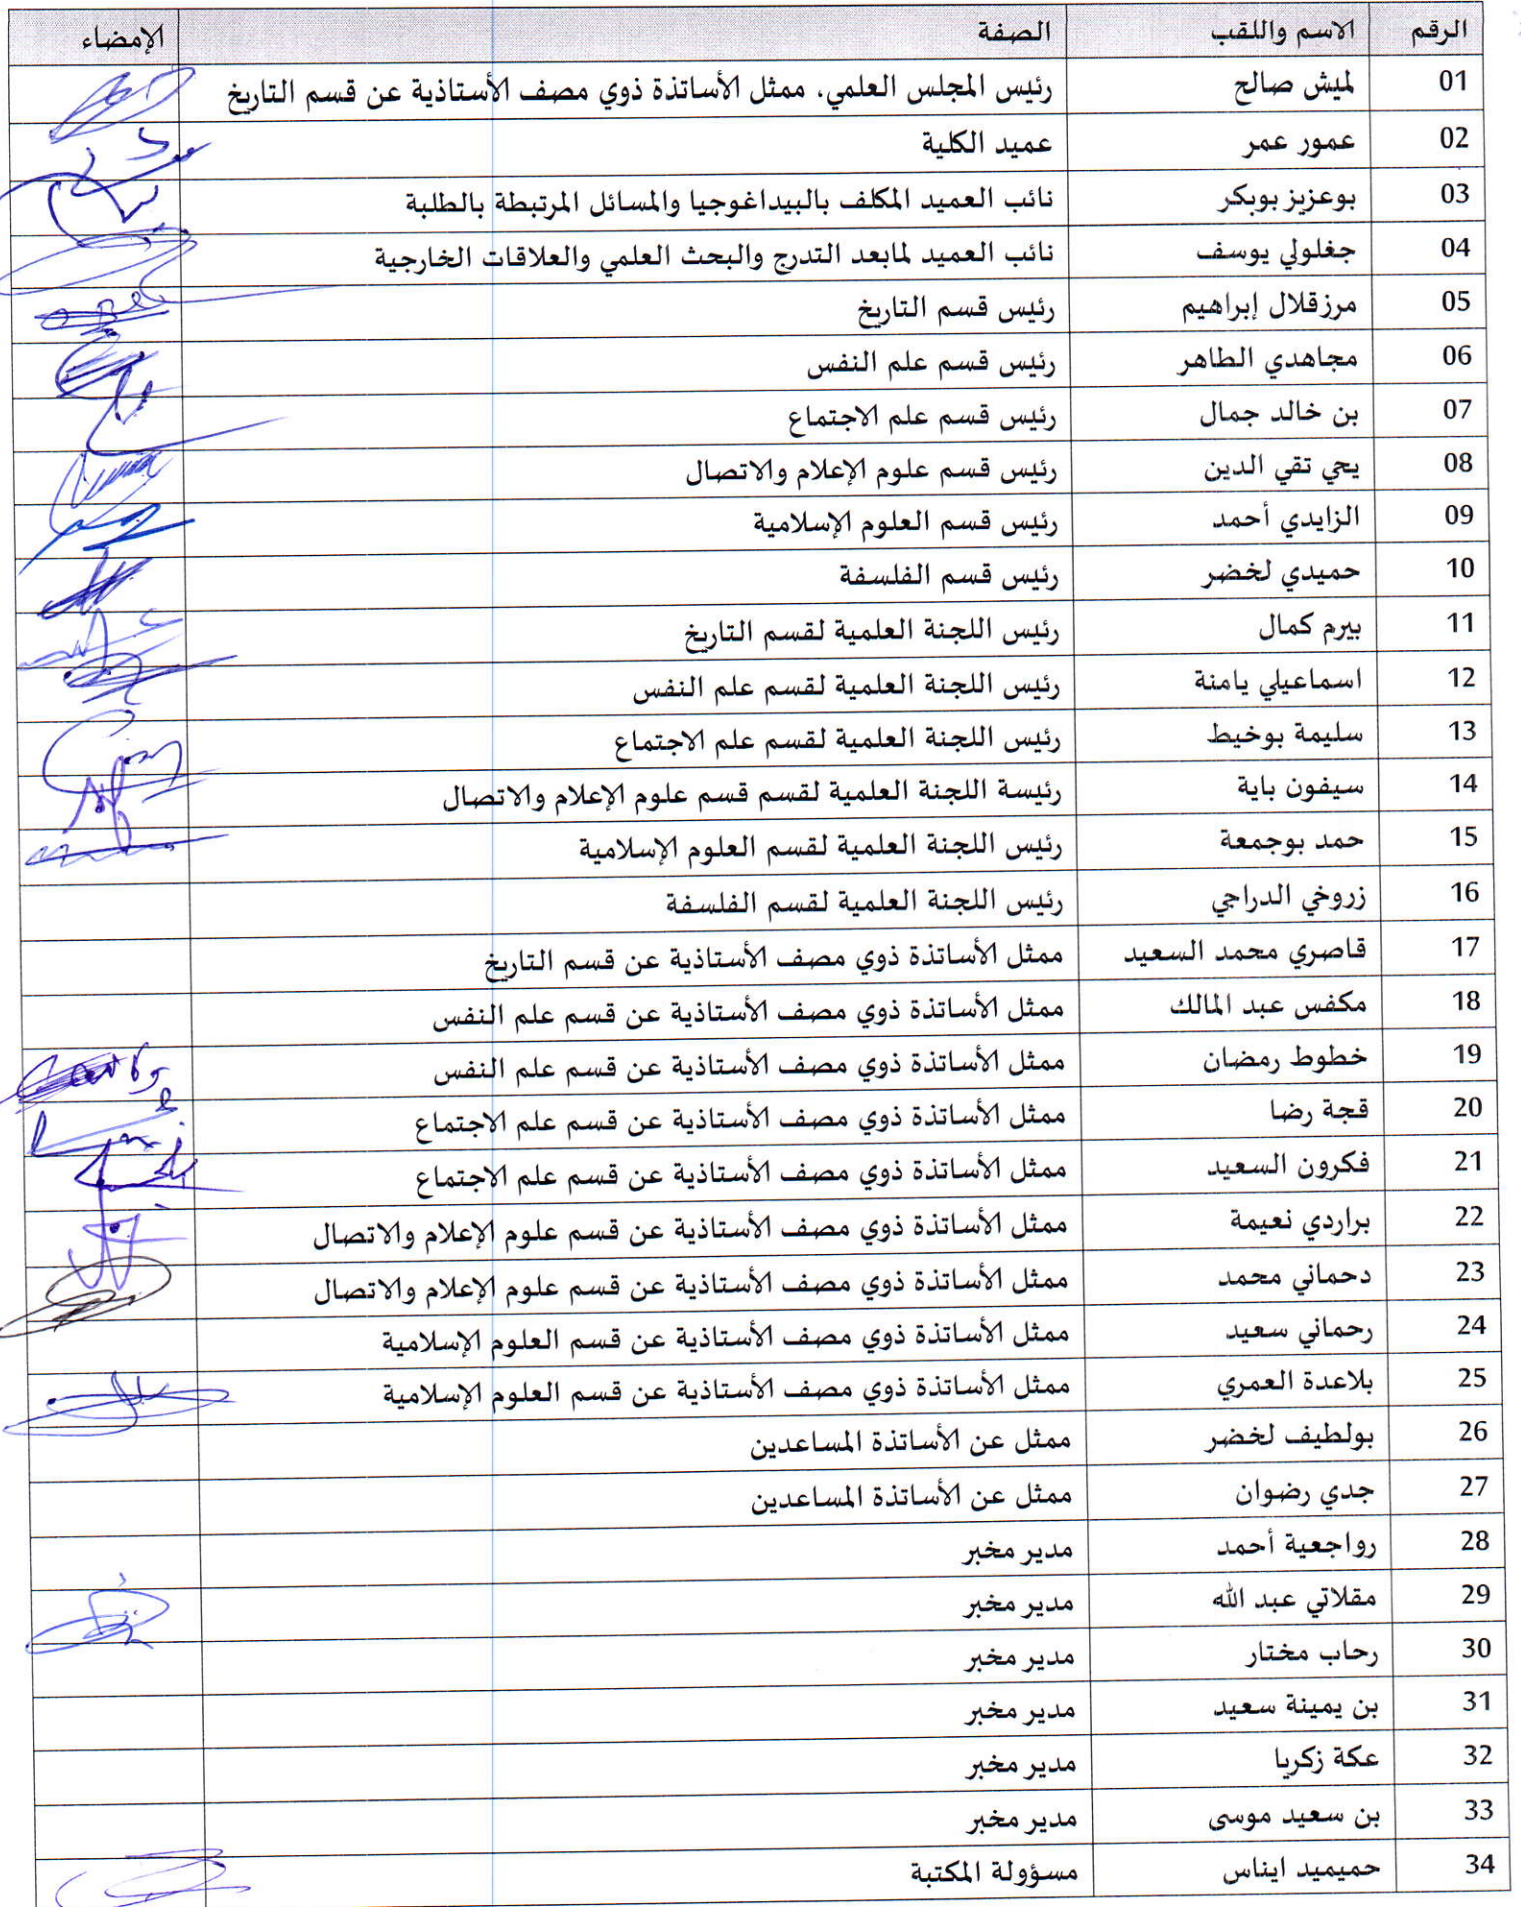 الرقم الاسم واللقب الصفة الإمضاء
01 لميش صالح رئيس المجلس العلمي. ممثل الأساتذة ذوي مصف الأستاذية عن قسم التاريخ
02 عمور عمر عميد الكلية
03 بوعزيز بوبكر نائب العميد المكلف بالبيداغوجيا والمسائل المرتبطة بالطلبة
04 جغلولي يوسف نائب العميد لمابعد التدرج والبحث العلمي والعلاقات الخارجية
05 مرزقلال إبراهيم رئيس قسم التاريخ
06 مجاهدي الطاهر رئيس قسم علم النفس
07 بن خالد جمال رئيس قسم علم الاجتماع
08 يحي تقي الدين رئيس قسم علوم الإعلام والاتصال
09 الزايدي أحمد رئيس قسم العلوم الإسلامية
10 حميدي لخضر رئيس قسم الفلسفة
11 بيرم كمال رئيس اللجنة العلمية لقسم التاريخ
12 اسماعيلي يامنة رئيس اللجنة العلمية لقسم علم النفس
13 سليمة بوخيط رئيس اللجنة العلمية لقسم علم الاجتماع
14 سيفون باية رئيسة اللجنة العلمية لقسم قسم علوم الإعلام والاتصال
15 حمد بوجمعة رئيس اللجنة العلمية لقسم العلوم الإسلامية
16 زروخي الدراجي رئيس اللجنة العلمية لقسم الفلسفة
17 قاصري محمد السعيد ممثل الأساتذة ذوي مصف الأستاذية عن قسم التاريخ
18 مكفس عبد المالك ممثل الأساتذة ذوي مصف الأستاذية عن قسم علم النفس
19 خطوط رمضان ممثل الأساتذة ذوي مصف الأستاذية عن قسم علم النفس
20 قجة رضا ممثل الأساتذة ذوي مصف الأستاذية عن قسم علم الاجتماع
21 فكرون السعيد ممثل الأساتذة ذوي مصف الأستاذية عن قسم علم الاجتماع
22 براردي نعيمة ممثل الأساتذة ذوي مصف الأستاذية عن قسم علوم الإعلام والاتصال
23 دحماني محمد ممثل الأساتذة ذوي مصف الأستاذية عن قسم علوم الإعلام والاتصال
24 رحماني سعيد ممثل الأساتذة ذوي مصف الأستاذية عن قسم العلوم الإسلامية
25 بلاعدة العمري ممثل الأساتذة ذوي مصف الأستاذية عن قسم العلوم الإسلامية
26 بولطيف لخضر ممثل عن الأساتذة المساعدين
27 جدي رضوان ممثل عن الأساتذة المساعدين
28 رواجعية أحمد مدير مخبر
29 مقلاتي عبد الله مدير مخبر
30 رحاب مختار مدير مخبر
31 بن يمينة سعيد مدير مخبر
32 عكة زكريا مدير مخبر
33 بن سعيد موسى مدير مخبر
34 حميميد ايناس مسؤولة المكتبة